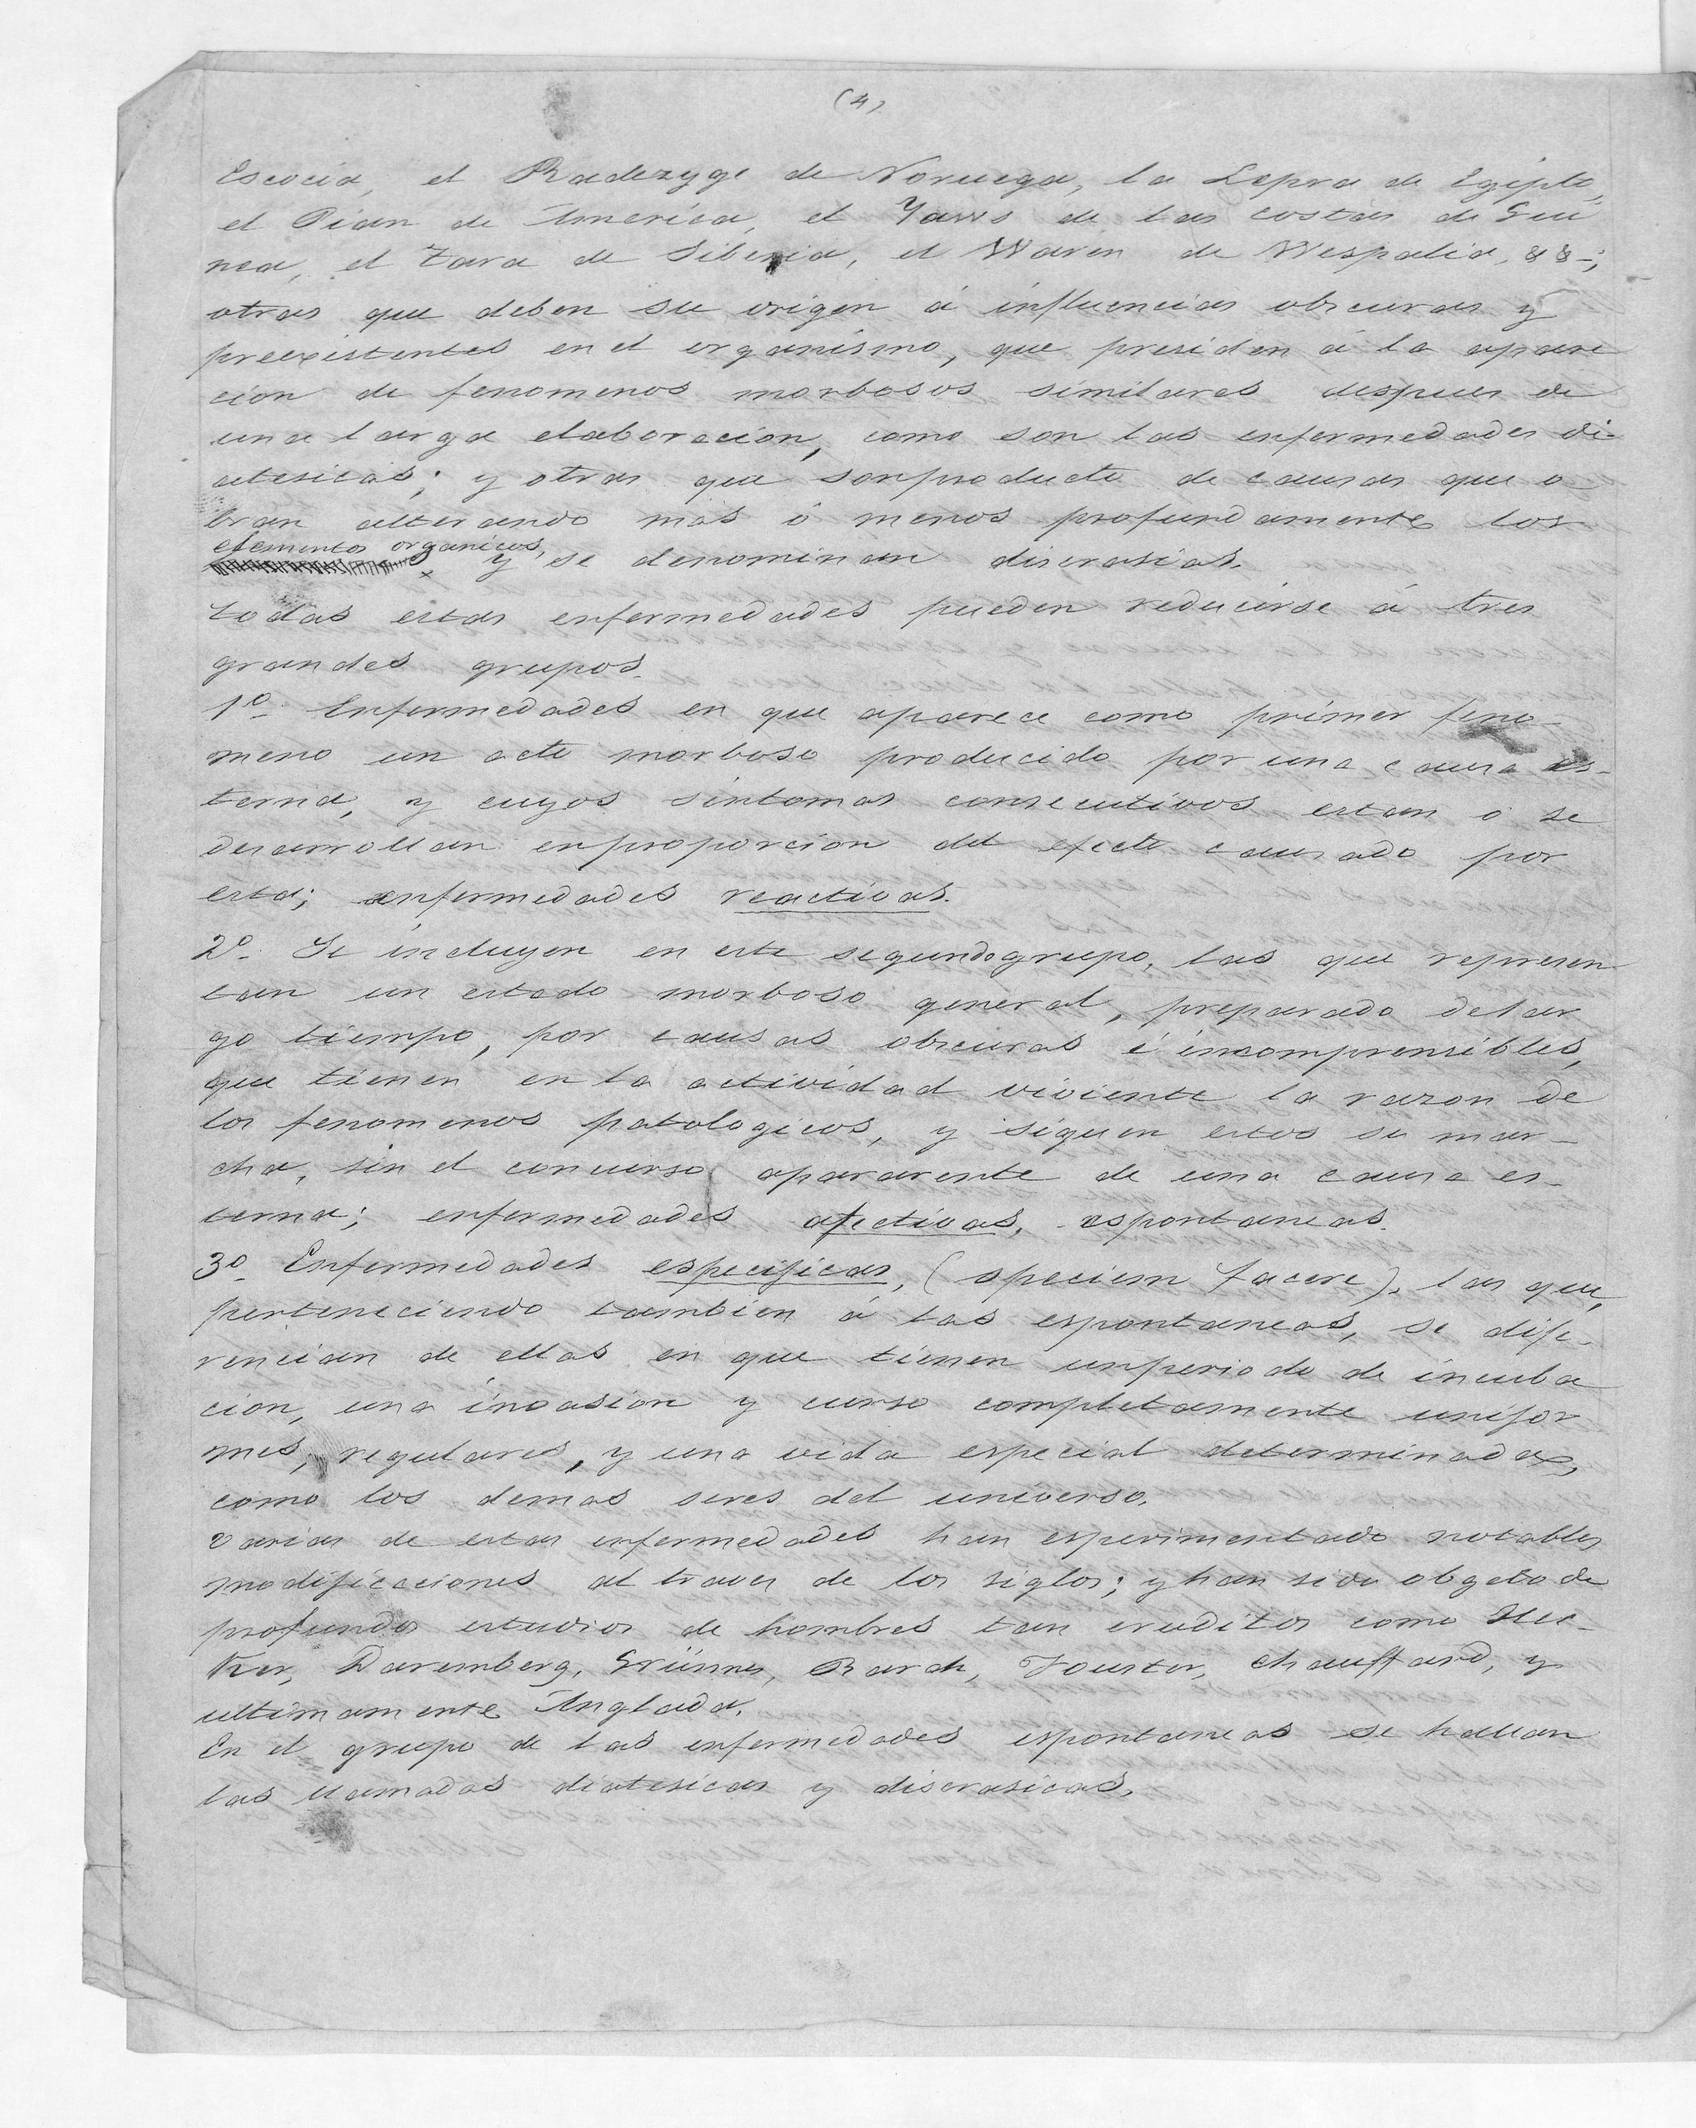 (4)
Escocia, el Radezyge de Noruega, la Lepra de Egipto,
el Pian de America, el Yaws de las costas de Gui
nea, el Zara de Siberia, el Waren de Wespalia, && -;
otras que deben su origen á influencias obscuras y
preexistentes en el organismo, que presiden á la apari
cion de fenomenos morbosos similares despues de
una larga elaboracion, como son las enfermedades di-
atesicas; y otras que son producto de causas que o
bran alterando mas ó menos profundamente los
elementos organicos,
y se denominan discrasias.
todas estas enfermedades pueden reducirse á tres
grandes grupos.
1º Enfermedades en que aparece como primer feno-
meno un acto morboso producido por una causa es-
terna, y cuyos sintomas consecutivos estan o se
desarrollan en proporcion del efecto causado por
esta; enfermedades reactivas.
2º. Se incluyen en este segundo grupo, las que represen
tan un estado morboso general, preparado de lar
go tiempo, por causas obscuras é incomprensibles,
que tienen en la actividad viviente la razon de
los fenomenos patologicos, y siguen estos su mar-
cha, sin el concurso apararente de una causa es-
terna; enfermedades afectivas, espontaneas.
3º Enfermedades especificas, (speciem facere), las que,
perteneciendo tambien á las espontaneas, se dife-
rencian de ellas en que tienen un periodo de incuba
cion, una invasion y curso completamente unifor
mes, regulares, y una vida especial determinada,
como los demas seres del universo.
Varias de estas enfermedades han esperimentado notables
modificaciones al traves de los siglos; y han sido obgeto de
profundos estudios de hombres tan eruditos como Hec-
Ker, Daremberg, Grünner, Barch, Fouster, Chauffard, y
ultimamente Anglada.
En el grupo de las enfermedades espontaneas se hallan
las llamadas diatesicas y discrasicas.